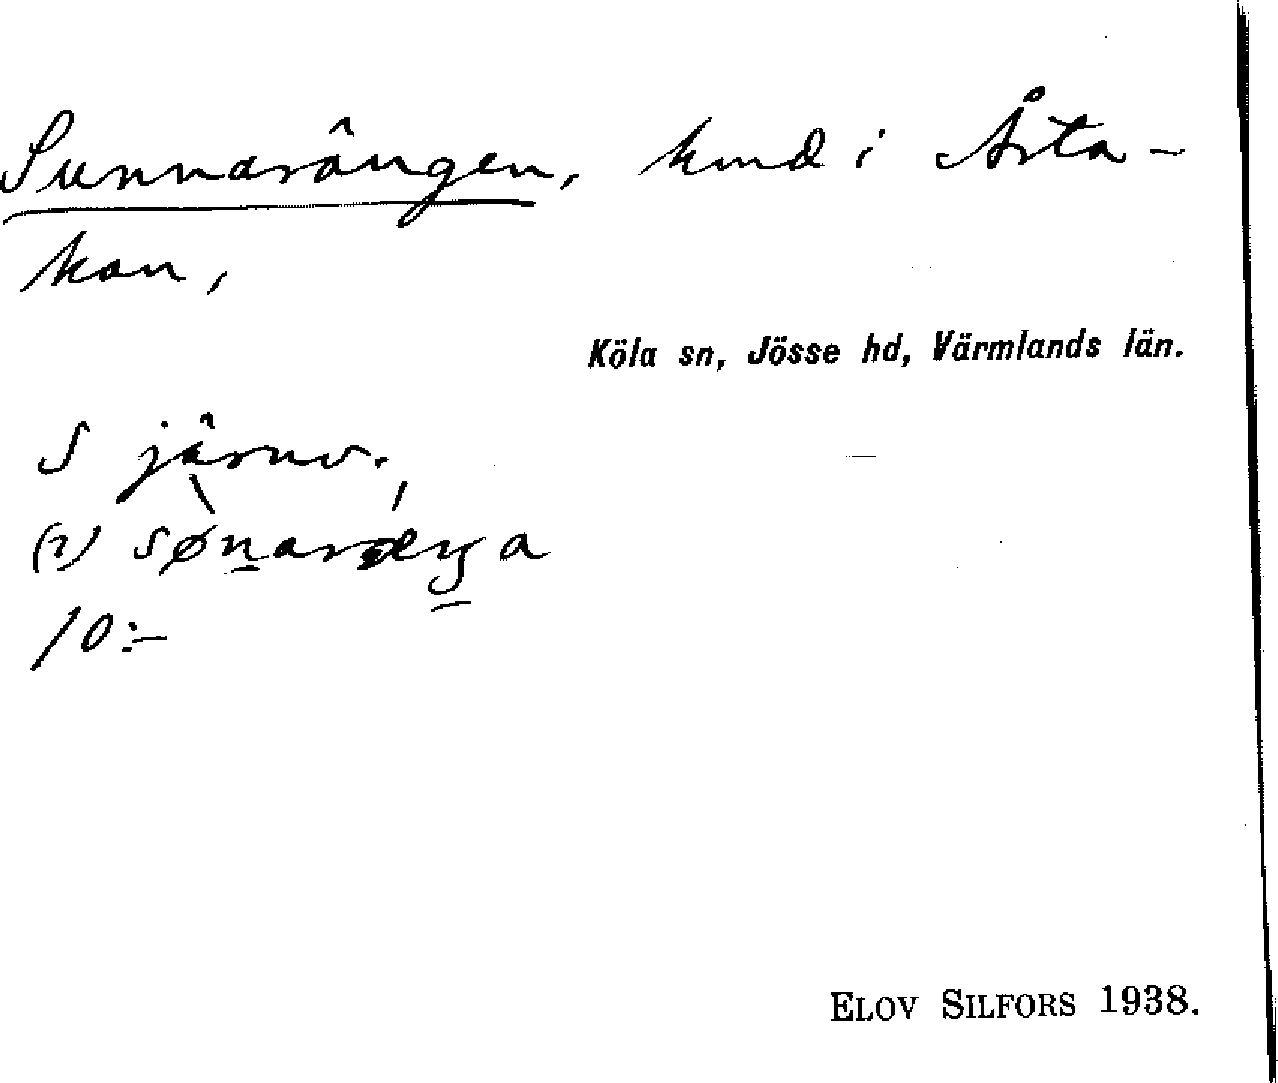 Sunnarängen, hmd i Årta-
kan,
Köla sn, Jösse hd, Värmlands län.
S järnv.
(2) sønaræŋa
10:-
ELOV SILFORS 1938.